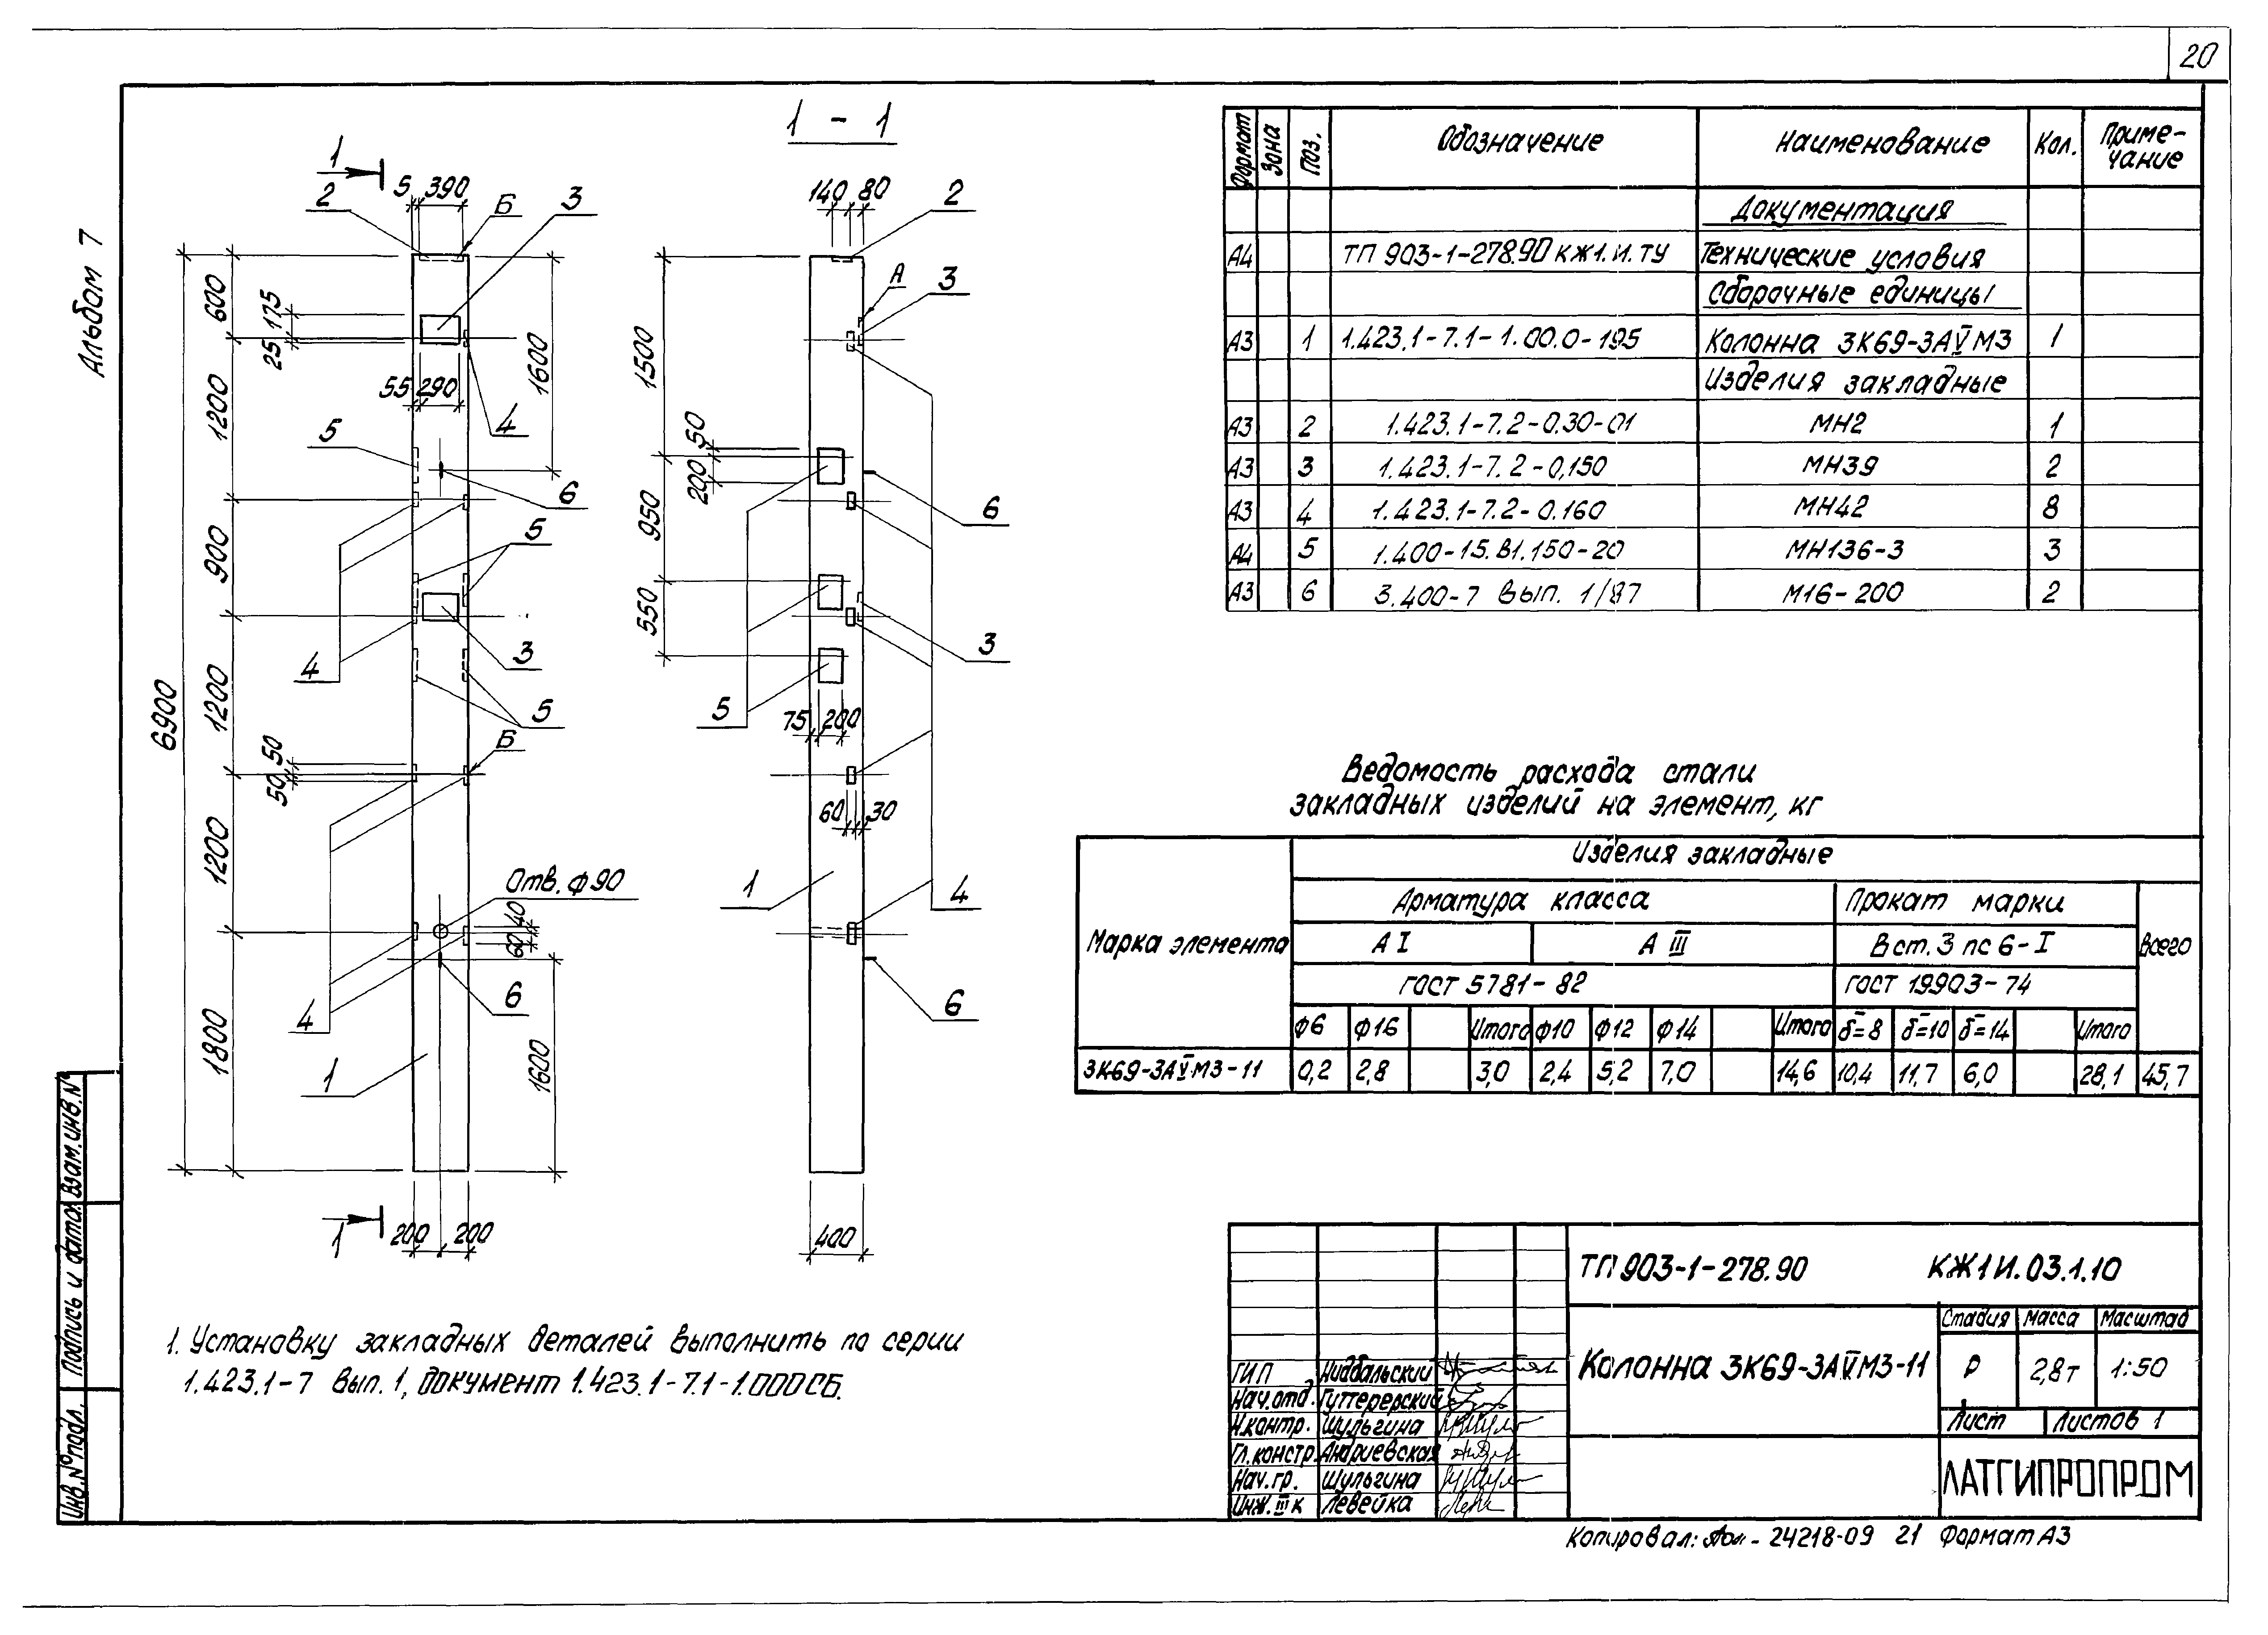 20
Альбом 7
1 - 1
1
5 390
2
Б
3
600
175
25
1600
55 290
4
1200
5
6
900
5
4
3
6900
1200
5
50
50
Б
1200
Отв. ф90
40
60
4
6
1800
1
1600
1
200 200
140 80
2
А
3
1500
50
200
6
950
550
3
5
75 200
60 30
1
4
6
400
Формат Зона Поз. Обозначение Наименование Кол. Приме-чание
Документация
А4 ТП 903-1-278.90 КЖ1.И.ТУ Технические условия
Сборочные единицы
А3 1 1.423.1-7.1-1.00.0-195 Колонна 3К69-3АⅤМ3 1
Изделия закладные
А3 2 1.423.1-7.2-0.30-01 МН2 1
А3 3 1.423.1-7.2-0,150 МН39 2
А3 4 1.423.1-7.2-0.160 МН42 8
А4 5 1.400-15.В1.150-20 МН136-3 3
А3 6 3.400-7 Вып. 1/87 М16-200 2
Ведомость расхода стали
закладных изделий на элемент, кг
Марка элемента
Изделия закладные
Арматура класса Прокат марки
А I А III Вст.3 пс 6-I Всего
ГОСТ 5781-82 ГОСТ 19903-74
ф6 ф16 Итого ф10 ф12 ф14 Итого δ=8 δ=10 δ=14 Итого
3К69-3АⅤМ3-11 0,2 2,8 3,0 2,4 5,2 7,0 14,6 10,4 11,7 6,0 28,1 45,7
1. Установку закладных деталей выполнить по серии
1.423.1-7 Вып. 1, документ 1.423.1-7.1-1.000СБ.
Инв.№подл. Подпись и дата Взам.инв.№
ТП 903-1-278.90 КЖ1И.03.1.10
Колонна 3К69-3АⅤМ3-11
Стадия Масса Масштаб
Р 2,8т 1:50
Лист Листов 1
ЛАТГИПРОПРОМ
ГИП Нидбальский
Нач.отд. Гуттерерский
Н.контр. Шульгина
Гл.констр. Андриевская
Нач.гр. Шульгина
Инж. III к Левейка
Копировал: 24218-09 21 Формат А3